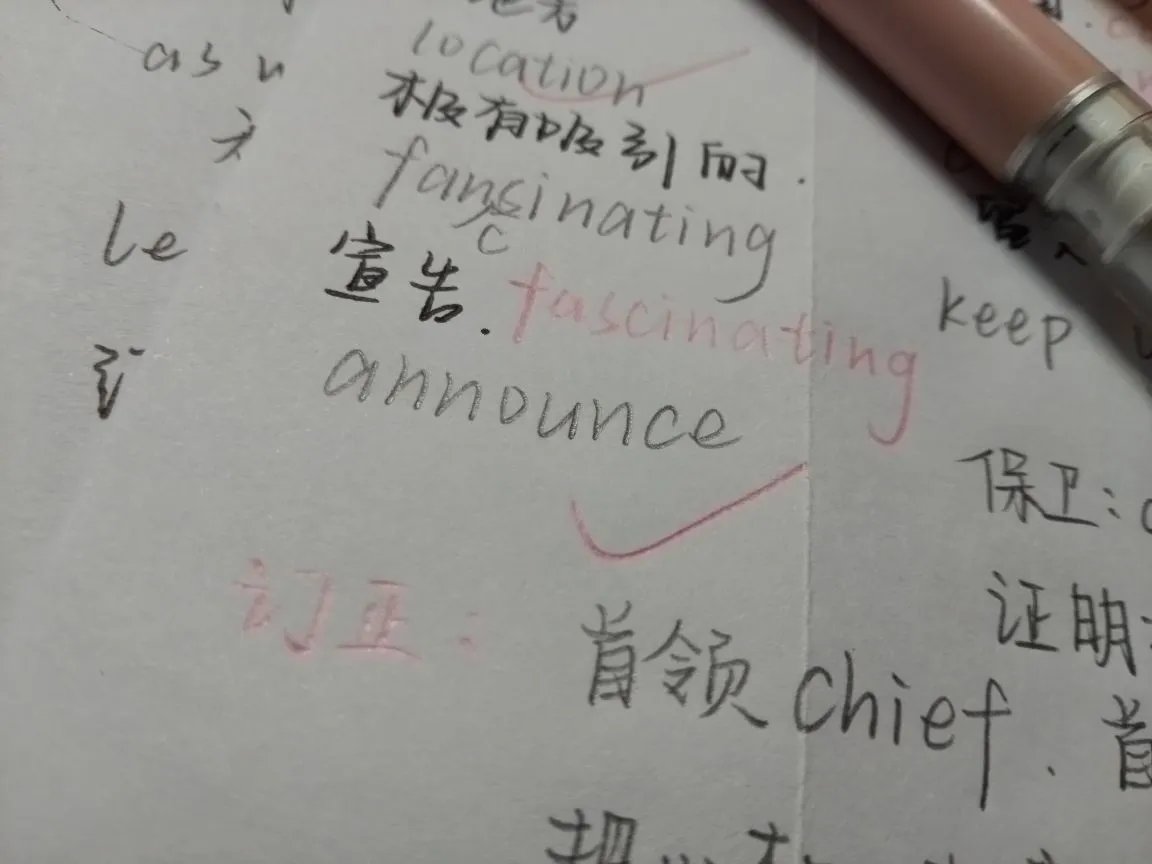 as
location
极有吸引的.
fansinating
c
le
宣告.
fascinating
keep
announce
保卫:
订正:
证明
首领 chief. 首